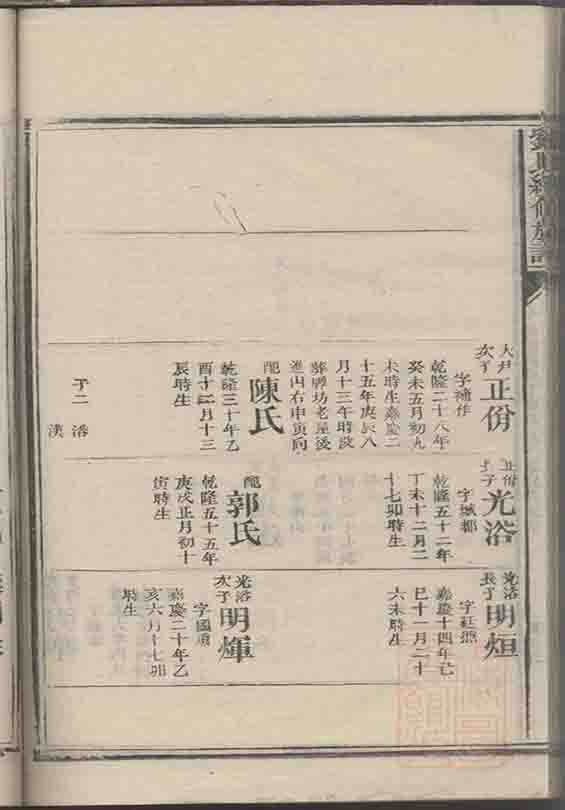 劉氏續修族譜
大尹
次子
正份
字補作
乾隆二十八年
癸未五月初九
未時生嘉慶二
十五年庚辰八
月十三午時歿
葬壩坊老屋後
進山右申寅向
配
陳氏
乾隆三十年乙
酉十二月十三
辰時生
子二 浴
漢
正份
長子
光浴
乾隆五十二年
丁未十二月二
十七卯時生
配
郭氏
乾隆五十五年
庚戌正月初十
寅時生
光浴
長子
明烜
嘉慶十四年己
巳十一月二十
六未時生
光浴
次子
明煇
字國甫
嘉慶二十年乙
亥六月十七卯
時生